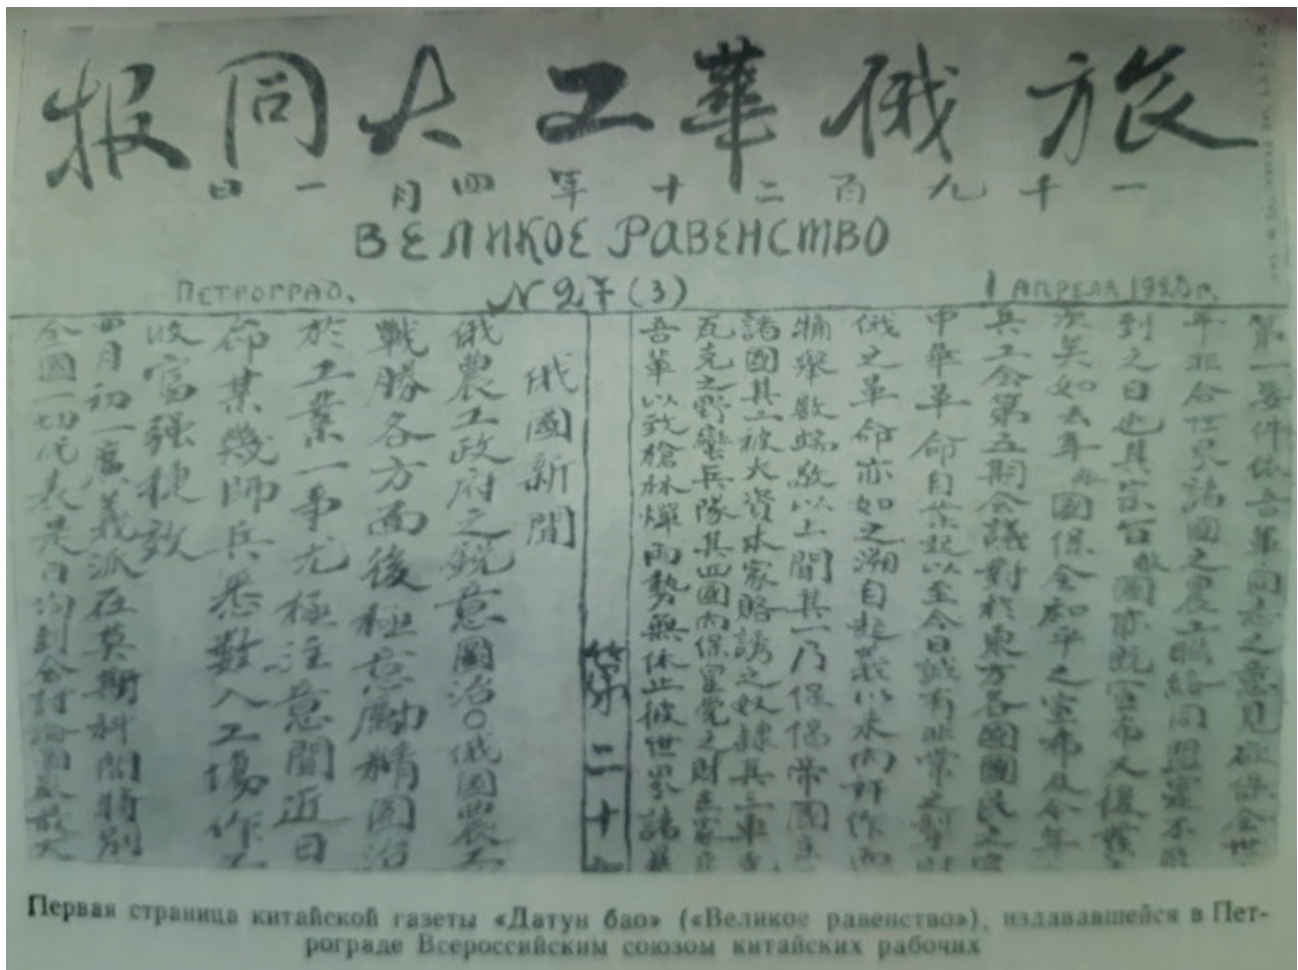 旅俄華工大同報
一千九百二十年四月一日
ВЕЛИКОЕ РАВЕНСТВО
ПЕТРОГРАД.
№ 27 (3)
1 АПРЕЛЯ 1920 г.
第一要件依吾華同志之意見
年非合世界諸國之農工聯絡同盟
到之日也其宗旨敝國亦既宣布又復
次矣如去年國保全和平之宣布及今年
兵工會第五期會議對於東方各國國民之宣
中華革命自業起以至今日誠有非常之
俄之革命亦如之溯自起義以來內奸作
犄舉數端敬以上聞其一乃保偈帝國
諸國其二被大資本家賂誘之奴隸其三
瓦克之野蠻兵隊其四國內保皇党之財主
吾華以致槍林燀雨勢無休止彼世界諸
第二十
俄國新聞
俄農工政府之銳意圖治○俄國農工
戰勝各方面後極意勵精圖治
於工業一事尤極注意間近日
命某幾師兵悉數入工場作工
收富强捷效
四月初一廣義派在莫斯科開特別
全國一切代表是日均到会討論
Первая страница китайской газеты «Датун бао» («Великое равенство»), издававшейся в Пет-
рограде Всероссийским союзом китайских рабочих